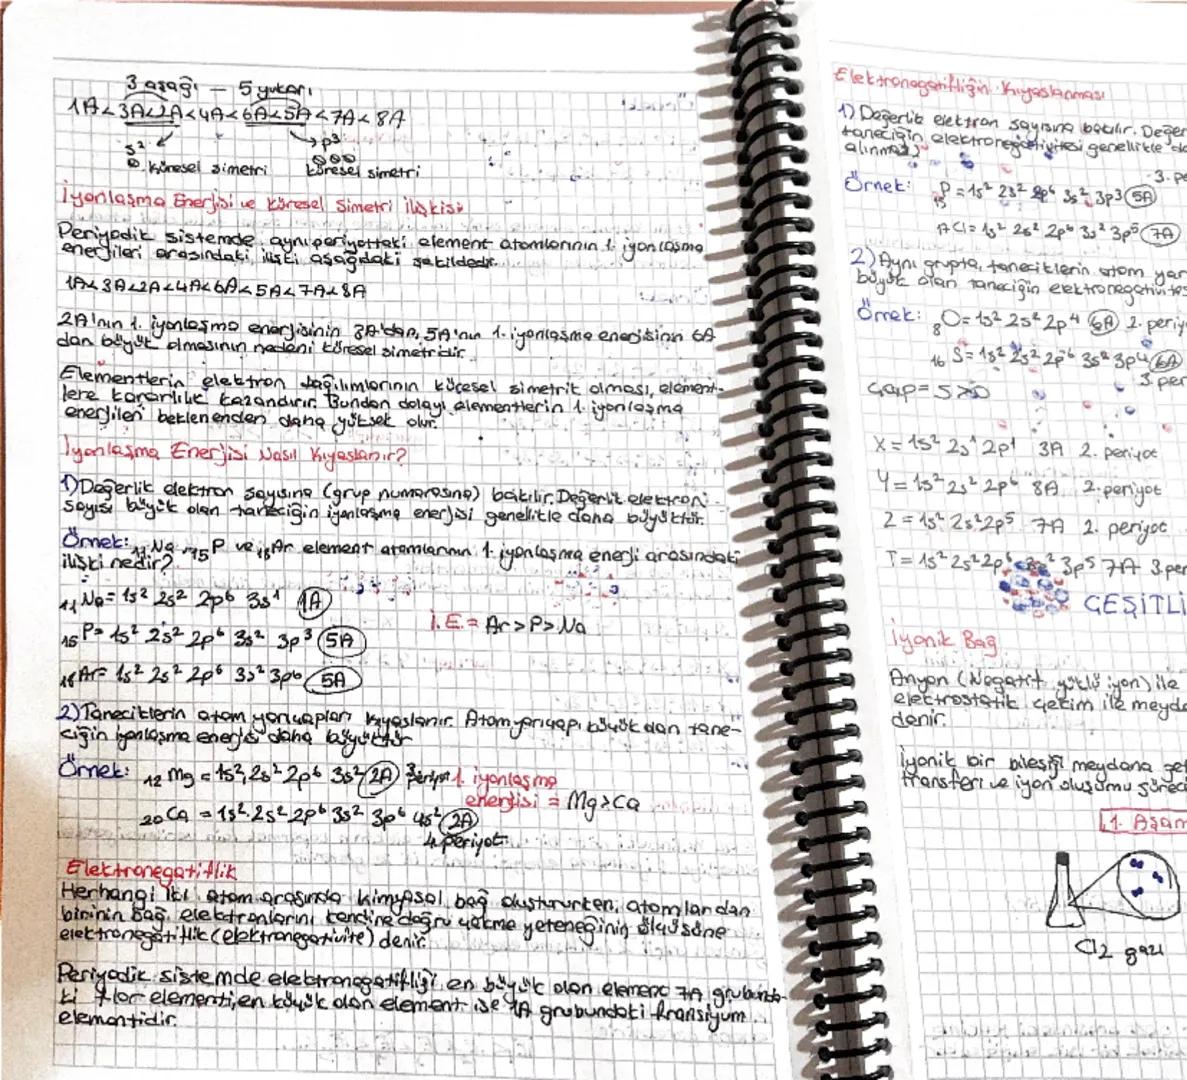 3 aşağı — 5 yukarı
1A<3A<2A<4A<6A<5A<7A<8A
s² p³
Küresel simetri Küresel simetri
İyonlaşma Enerjisi ve Küresel Simetri İlişkisi
Periyodik sistemde, aynı periyottaki element atomlarının 1. iyonlaşma
enerjileri arasındaki ilişki aşağıdaki şekildedir.
1A<3A<2A<4A<6A<5A<7A<8A
2A'nın 1. iyonlaşma enerjisinin 3A'dan, 5A'nın 1. iyonlaşma enerjisinin 6A
dan büyük olmasının nedeni küresel simetridir.
Elementlerin elektron dağılımlarının küresel simetrik olması, element-
lere kararlılık kazandırır. Bundan dolayı elementlerin 1. iyonlaşma
enerjileri beklenenden daha yüksek olur.
İyonlaşma Enerjisi Nasıl Kıyaslanır?
1) Değerlik elektron sayısına (grup numarasına) bakılır. Değerlik elektron
sayısı büyük olan taneciğin iyonlaşma enerjisi genellikle daha büyüktür.
Örnek: 11Na, 15P ve 18Ar element atomlarının 1. iyonlaşma enerji arasındaki
ilişki nedir?
11Na = 1s² 2s² 2p⁶ 3s¹ 1A
İ.E. = Ar>P>Na
15P = 1s² 2s² 2p⁶ 3s² 3p³ 5A
18Ar = 1s² 2s² 2p⁶ 3s² 3p⁶ 5A
2) Taneciklerin atom yarıçapları kıyaslanır. Atom yarıçapı büyük olan tane-
ciğin iyonlaşma enerjisi daha büyüktür
Örnek: 12Mg = 1s² 2s² 2p⁶ 3s² 2A 3.periyot 1. iyonlaşma
enerjisi = Mg>Ca
20Ca = 1s² 2s² 2p⁶ 3s² 3p⁶ 4s² 2A
4.periyot
Elektronegatiflik
Herhangi iki atom arasında kimyasal bağ oluştururken, atomlardan
birinin bağ elektronlarını kendine doğru çekme yeteneğinin ölçüsüne
elektronegatiflik (elektronegativite) denir.
Periyodik sistemde elektronegatifliği en büyük olan element 7A grubunda-
ki flor elementi, en küçük olan element ise 1A grubundaki fransiyum
elementidir.
Elektronegatifliğin Kıyaslanması
1) Değerlik elektron sayısına bakılır. Değer
taneciğin elektronegativitesi genellikle
alınmaz)
3. pe
Örnek: 15P = 1s² 2s² 2p⁶ 3s² 3p³ 5A
17Cl = 1s² 2s² 2p⁶ 3s² 3p⁵ 7A
2) Aynı grupta, taneciklerin atom yar
büyük olan taneciğin elektronegativites
Örnek: 8O = 1s² 2s² 2p⁴ 6A 2. periy
16S = 1s² 2s² 2p⁶ 3s² 3p⁴ 6A
3. per
Çap = S>O
X = 1s² 2s¹ 2p¹ 3A 2. periyot
Y = 1s² 2s² 2p⁶ 8A 2. periyot
Z = 1s² 2s² 2p⁵ 7A 2. periyot
T = 1s² 2s² 2p⁶ 3s² 3p⁵ 7A 3.per
ÇEŞİTLİ
İyonik Bağ
Anyon (Negatif yüklü iyon) ile
elektrostatik çekim ile meyda
denir.
İyonik bir bileşiği meydana get
transferi ve iyon oluşumu süreci
1. Aşam
Cl2 gazı